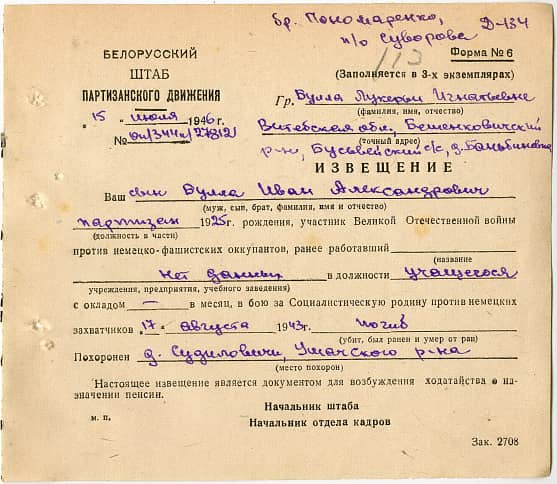 бр. Пономаренко,
п/о Суворова Д-134
113
БЕЛОРУССКИЙ
ШТАБ
ПАРТИЗАНСКОГО ДВИЖЕНИЯ
Форма № 6
(Заполняется в 3-х экземплярах)
„ 15 " июля 1946 г.
№
Гр. Булла Лукерьи Игнатьевне
(фамилия, имя, отчество)
Витебская обл., Бешенковичский
(точный адрес)
р-н, с/с, д.
ИЗВЕЩЕНИЕ
Ваш сын Булла Иван Александрович
(муж, сын, брат, фамилия, имя и отчество)
партизан 1925 г. рождения, участник Великой Отечественной войны
(должность в части)
против немецко-фашистских оккупантов, ранее работавший
(название
нет данных в должности учащегося
учреждения, предприятия, учебного заведения)
с окладом — в месяц, в бою за Социалистическую родину против немецких
захватчиков „ 17 " августа 1943 г. погиб
(убит, был ранен и умер от ран)
Похоронен д. Судиловичи, Ушачского р-на
(место похорон)
Настоящее извещение является документом для возбуждения ходатайства о на-
значении пенсии.
Начальник штаба
м. п.
Начальник отдела кадров
Зак. 2708